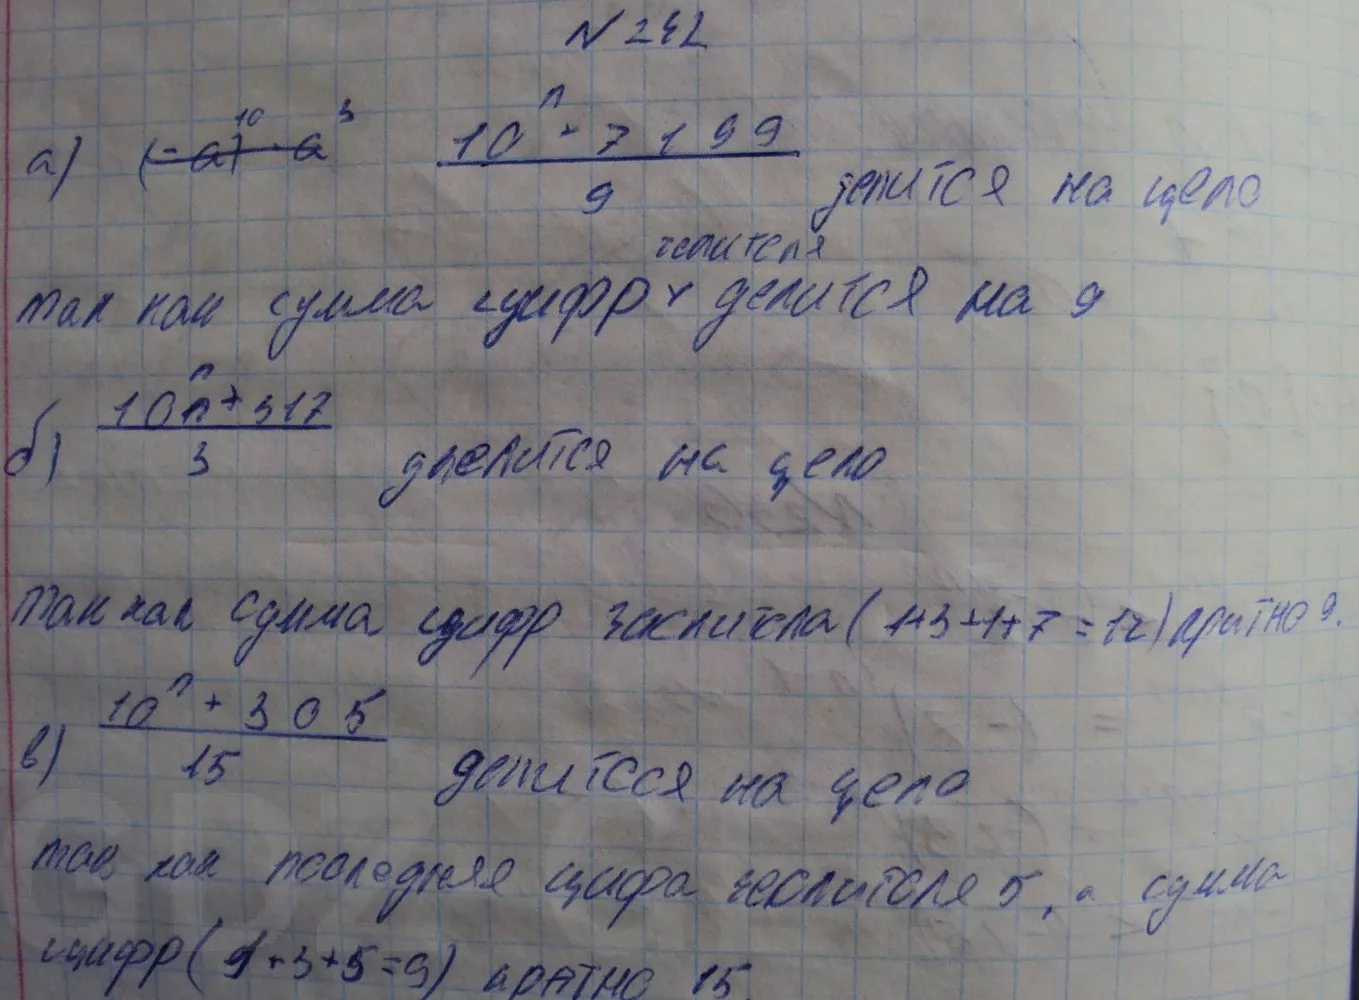 N 242
а) (-a)^10 · a^3   10^n - 7199 / 9   делится на цело
чеслителя
так как сумма цифр ˅ делится на 9
б) 10n^n + 317 / 3   делится на цело
так как сумма цифр числителя (1+3+1+7=12) кратно 9.
в) 10^n + 305 / 15   делитсся на цело
так как последняя цифра числителя 5, а сумма
цифр (1+3+5=9) кратно 15.